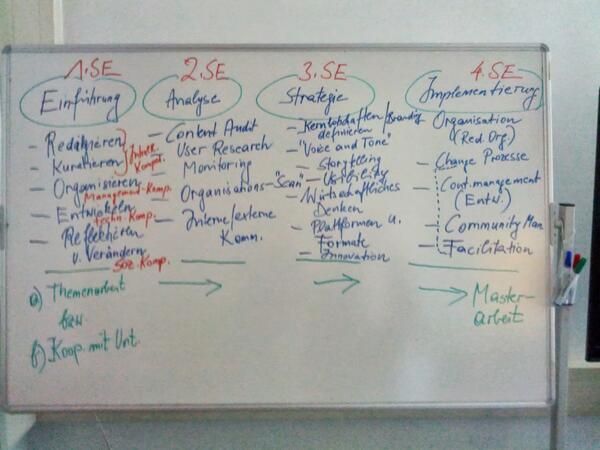 1.SE
Einführung
– Redaktieren
– Kuratieren
Inhalt. Kompet.
– Organisieren
Management-Komp.
– Entwickeln
techn. Komp.
– Reflektieren
u. Verändern
Soz. Komp.
a) Themenarbeit
bzw.
b) Koop. mit Unt.
2.SE
Analyse
– Content Audit
– User Research
– Monitoring
– Organisations-"Scan"
– Interne/externe
Komm.
3.SE
Strategie
– Kernbotschaften/Branding
definieren
– "Voice and Tone"
– Storytelling
– Usability
– Wirtschaftliches
Denken
– Plattformen u.
Formate
– Innovation
4.SE
Implementierung
– Organisation
(Red. Org.)
– Change Prozesse
– Cont. management
(Entw.)
– Community Man
– Facilitation
Master-
arbeit